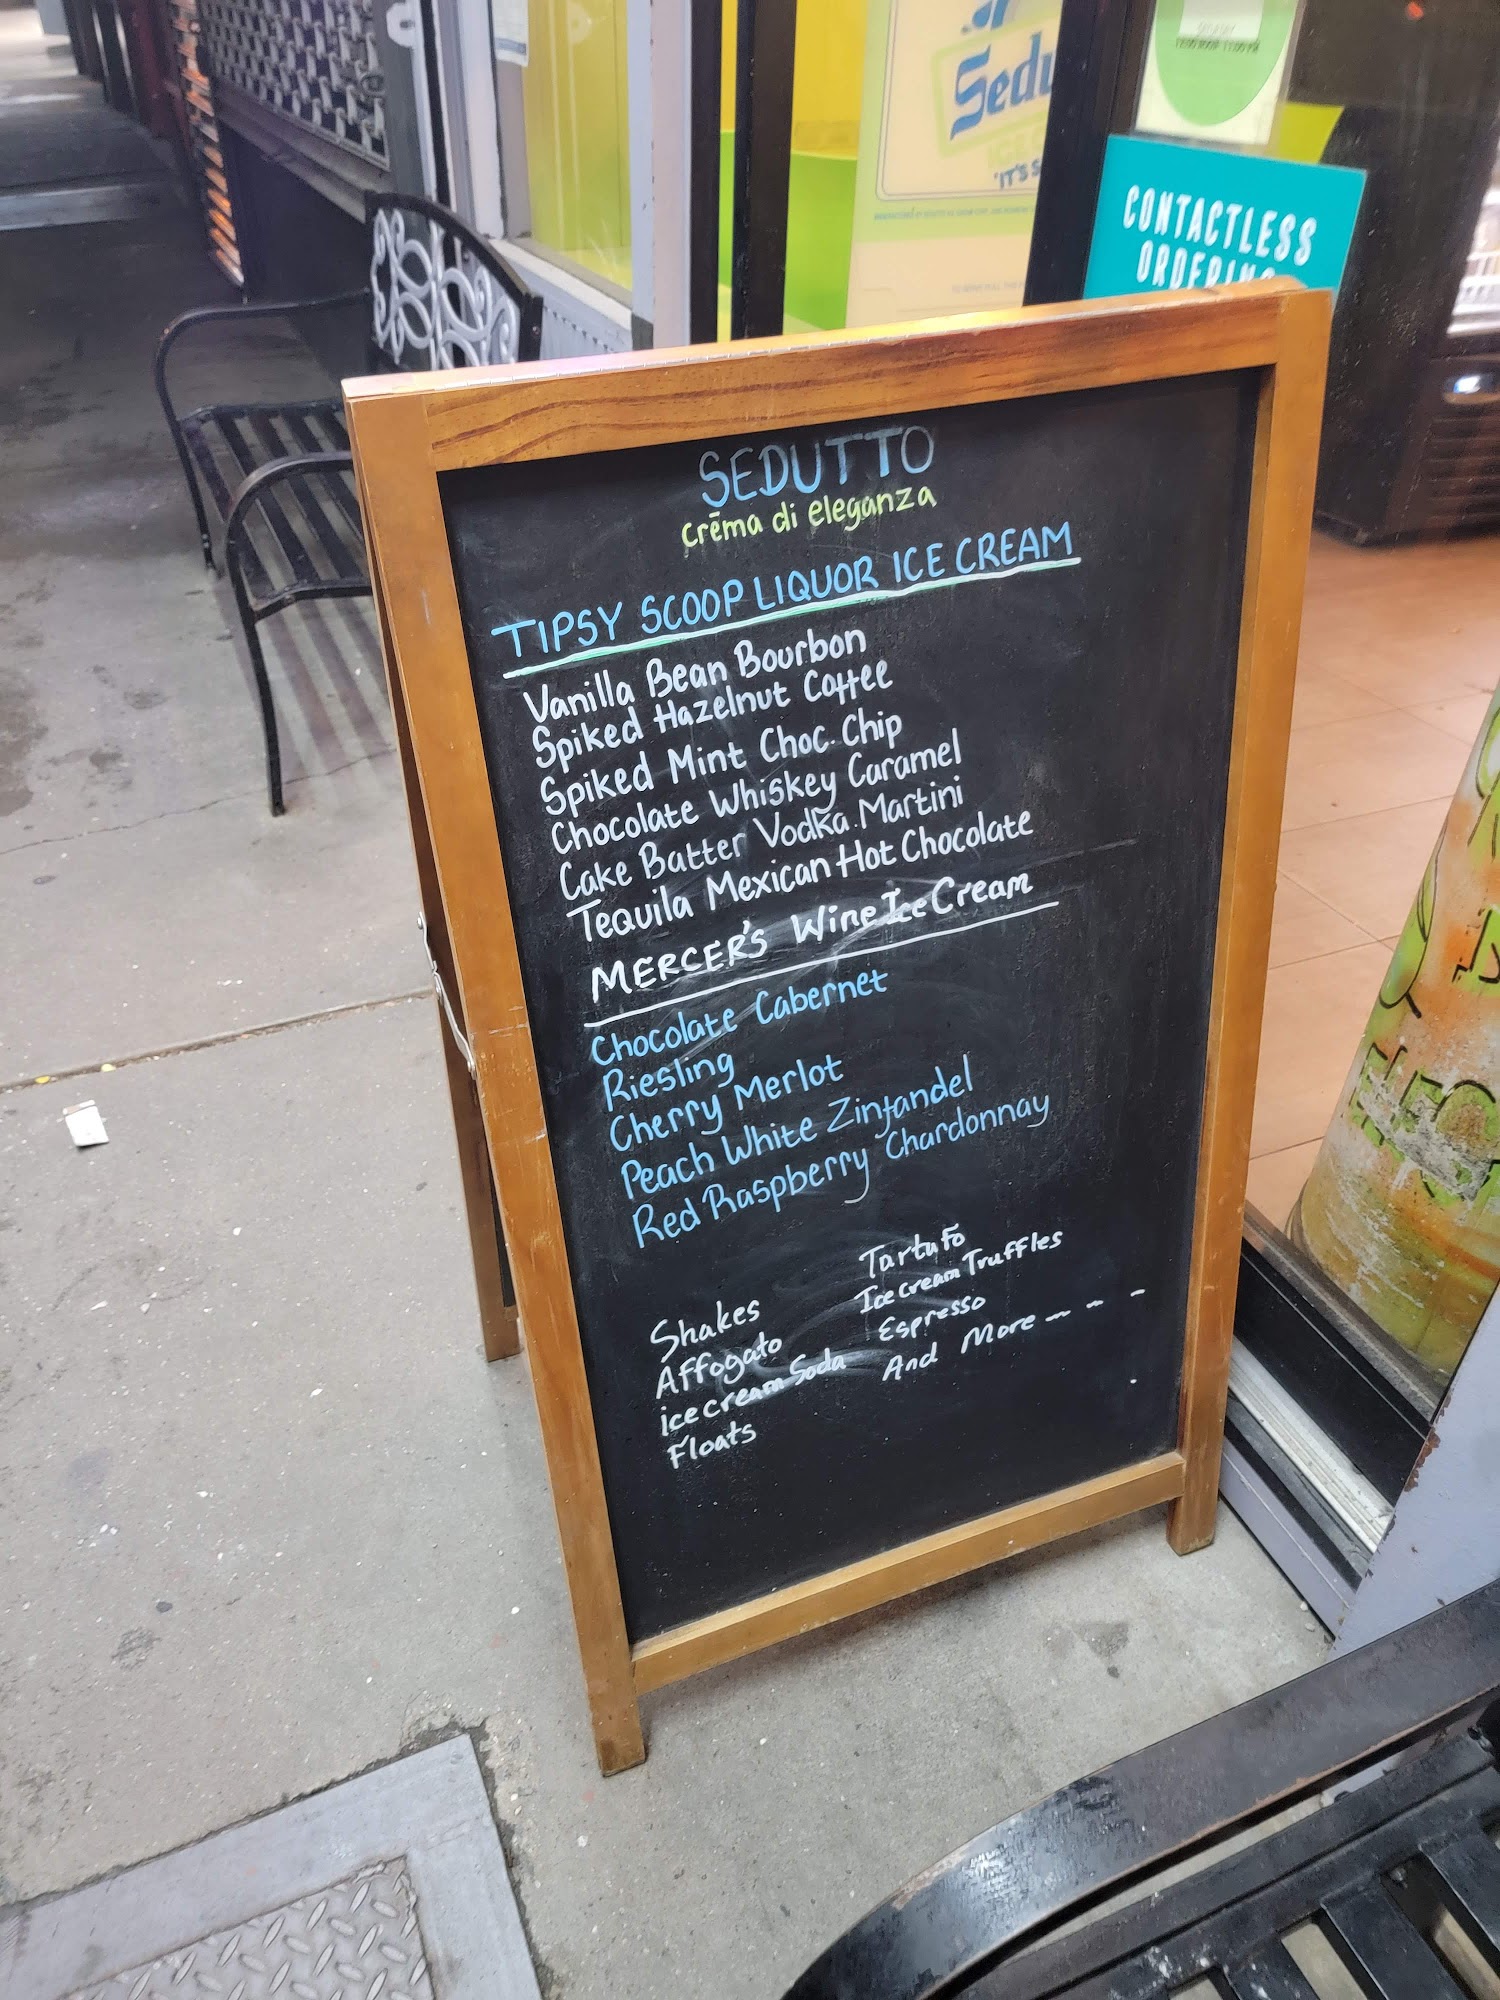 Sedu
'IT'S
CONTACTLESS
ORDERING
SEDUTTO
crēma di eleganza
TIPSY SCOOP LIQUOR ICE CREAM
Vanilla Bean Bourbon
Spiked Hazelnut Coffee
Spiked Mint Choc. Chip
Chocolate Whiskey Caramel
Cake Batter Vodka Martini
Tequila Mexican Hot Chocolate
MERCER'S Wine Ice Cream
Chocolate Cabernet
Riesling
Cherry Merlot
Peach White Zinfandel
Red Raspberry Chardonnay
Shakes
Affogato
ice cream Soda
Floats
Tartufo
Ice cream Truffles
Espresso
And More - - -